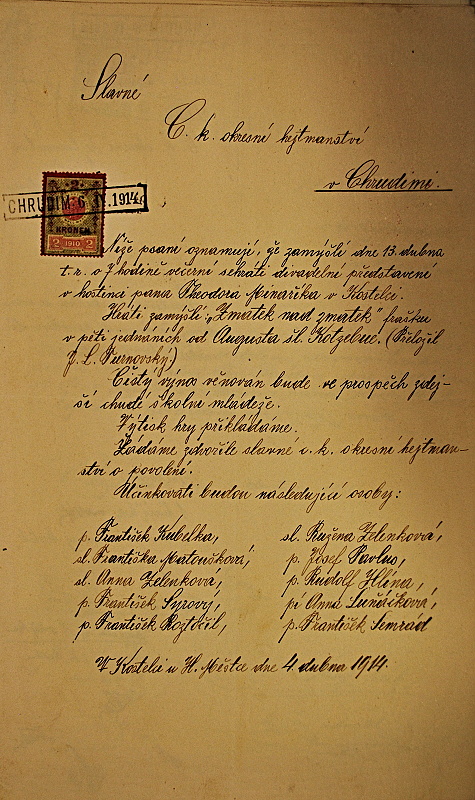 Slavné
C. k. okresní hejtmanství
v Chrudimi.
CHRUDIM 6 IV. 1914
2
KRONEN
2 1910 2
Níže psaní oznamují, že zamýšlí dne 13. dubna
t. r. o 7 hodině večerne sehráti divadelné představení
v hostinci pana Theodora Minaříka v Kostelci.
Hráti zamýšlí: „Zmatek nad zmatek" frašku
v pěti jednáních od Augusta sl. Kotzebue. (Přeložil
J. L. Turnovský.)
Čistý výnos věnován bude ve prospěch zdej-
ší chudé školní mládeže.
Výtisk hry přikládáme.
Žádáme zdvořile slavné c. k. okresní hejtman-
ství o povolení.
Účinkovati budou následující osoby:
p. František Kubelka,
sl. Františka Matoušková,
sl. Anna Zelenková,
p. František Syrový,
p. František Roztočil,
sl. Růžena Zelenková,
p. Josef Pavlus,
p. Rudolf Hlína,
pí Anna
p. František Semrad
V Kostelci u H. Městce dne 4. dubna 1914.